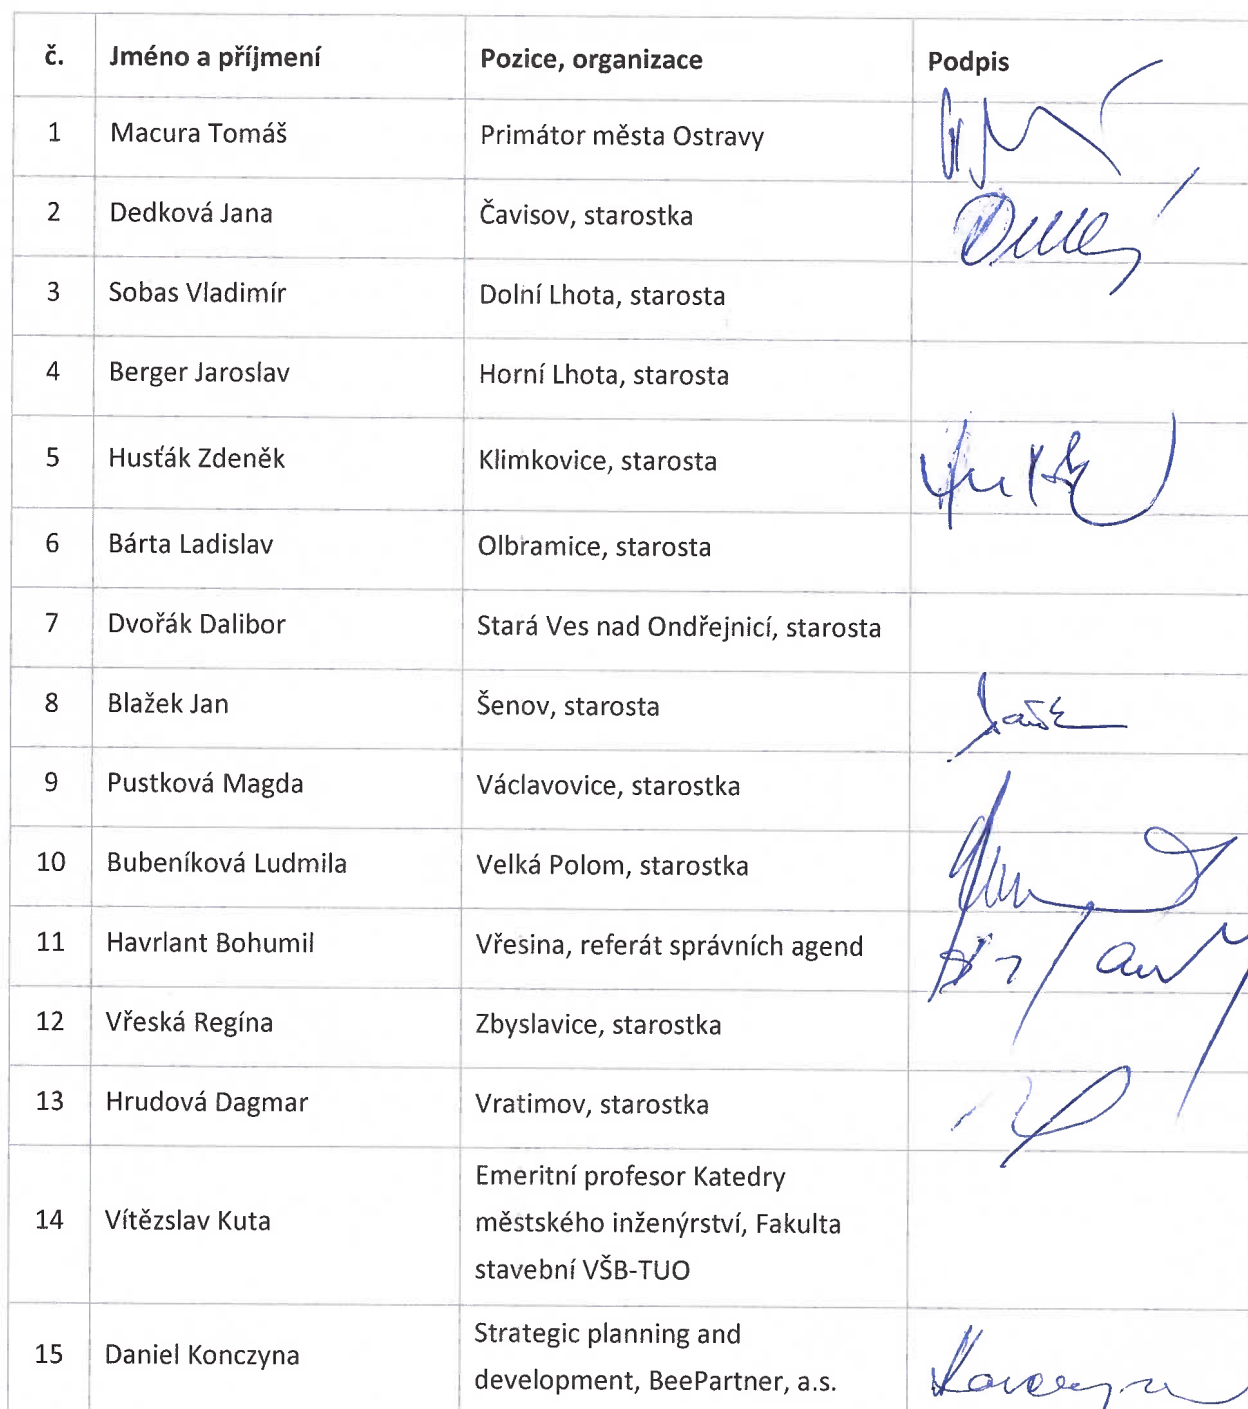 č. Jméno a příjmení Pozice, organizace Podpis
1 Macura Tomáš Primátor města Ostravy
2 Dedková Jana Čavisov, starostka
3 Sobas Vladimír Dolní Lhota, starosta
4 Berger Jaroslav Horní Lhota, starosta
5 Husťák Zdeněk Klimkovice, starosta
6 Bárta Ladislav Olbramice, starosta
7 Dvořák Dalibor Stará Ves nad Ondřejnicí, starosta
8 Blažek Jan Šenov, starosta
9 Pustková Magda Václavovice, starostka
10 Bubeníková Ludmila Velká Polom, starostka
11 Havrlant Bohumil Vřesina, referát správních agend
12 Vřeská Regína Zbyslavice, starostka
13 Hrudová Dagmar Vratimov, starostka
14 Vítězslav Kuta Emeritní profesor Katedry
městského inženýrství, Fakulta
stavební VŠB-TUO
15 Daniel Konczyna Strategic planning and
development, BeePartner, a.s.